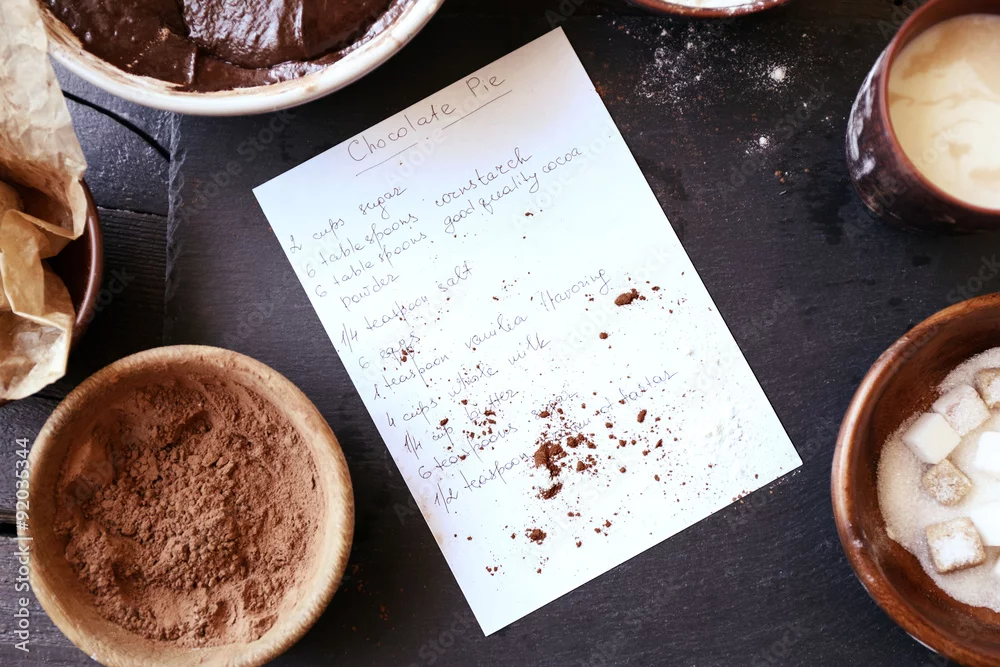 Chocolate Pie
2 cups sugar
6 tablespoons cornstarch
6 tablespoons good quality cocoa
powder
1/4 teaspoon salt
6 eggs
1 teaspoon vanilia flavoring
4 cups whole milk
1/4 cup butter
6 teaspoons sugar
1/2 teaspoon tartar
Adobe Stock | #92035344